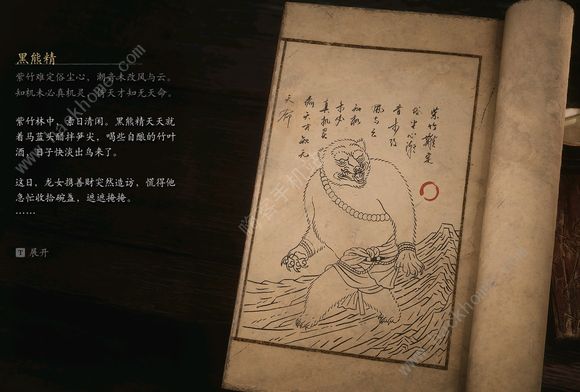 黑熊精
紫竹难定俗尘心，潮音未改风与云。
知机未必真机灵，倚天才知无天命。
紫竹林中，素日清闲。黑熊精天天就
着马蓝头醋拌笋尖，喝些自酿的竹叶
酒，日子快淡出鸟来了。
这日，龙女携善财突然造访，慌得他
急忙收拾碗盏，遮遮掩掩。
……
T 展开
紫竹難定
俗尘心潮
音未改
風与云
知机
未必
真机灵